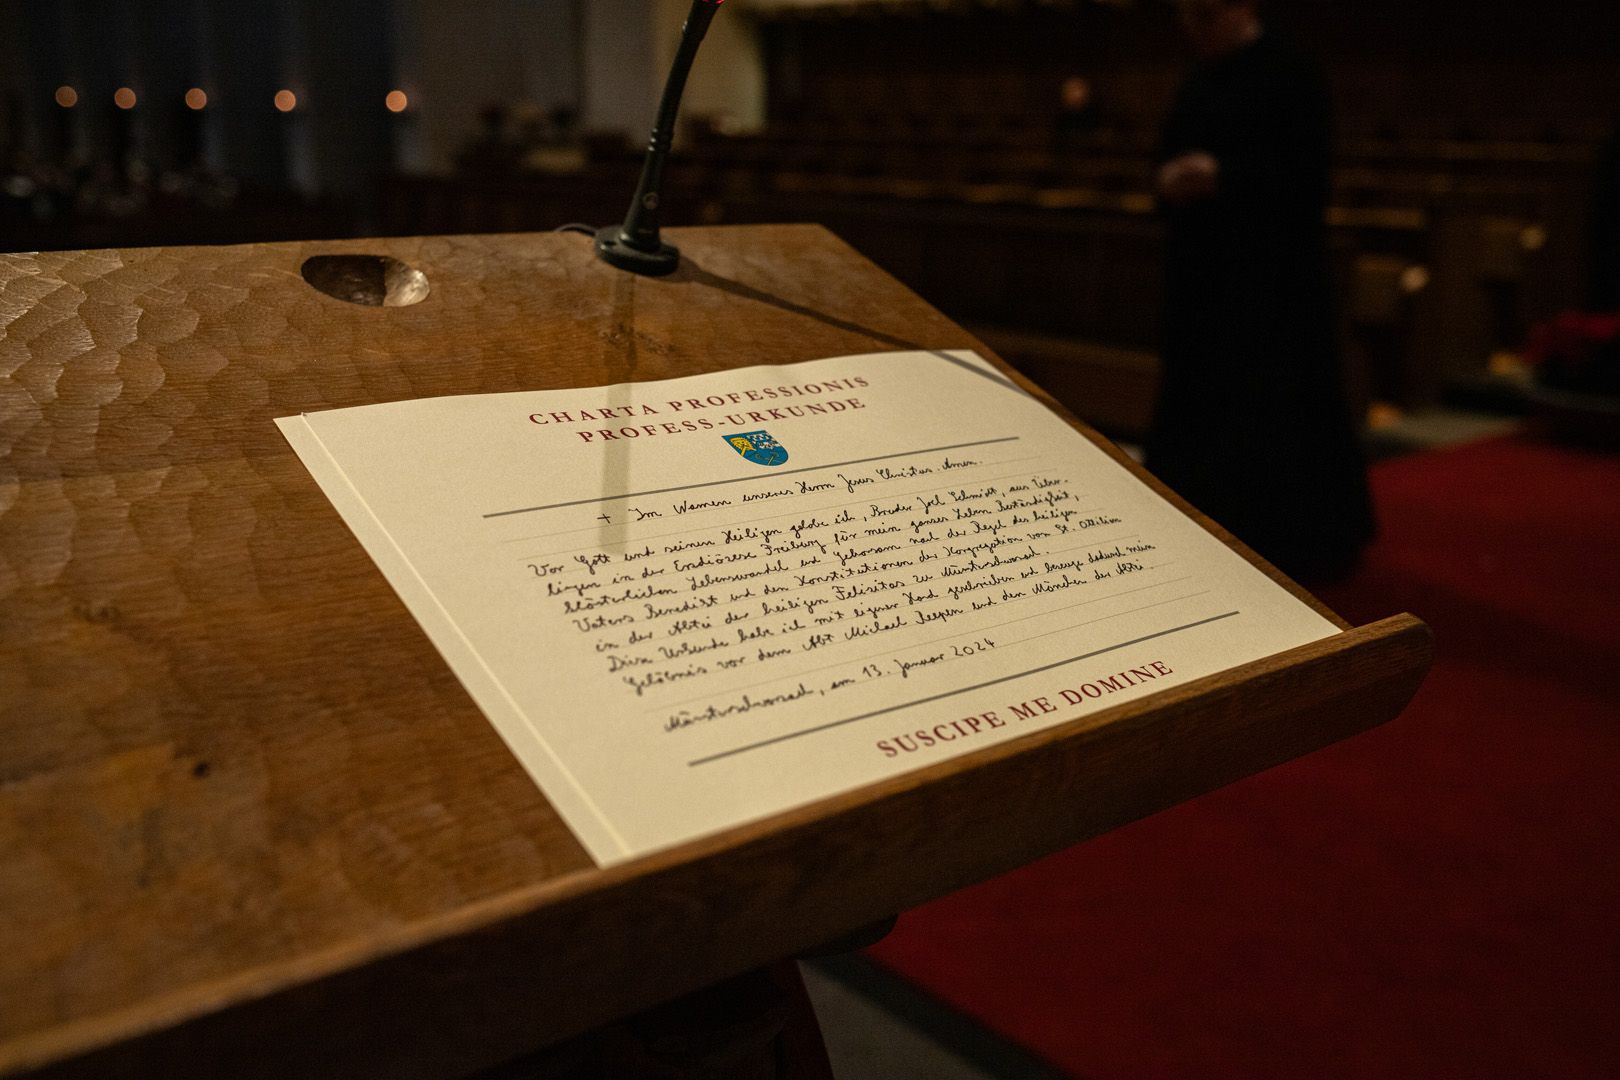 CHARTA PROFESSIONIS
PROFESS-URKUNDE
+ Im Namen unseres Herrn Jesus Christus. Amen.
Vor Gott und seinen Heiligen gelobe ich, Bruder Joel Schmidt, aus Über-
lingen in der Erzdiözese Freiburg für mein ganzes Leben Beständigkeit,
klösterlichen Lebenswandel und Gehorsam nach der Regel des heiligen
Vaters Benedikt und den Konstitutionen der Kongregation von St. Ottilien
in der Abtei der heiligen Felizitas zu Münsterschwarzach.
Diese Urkunde habe ich mit eigener Hand geschrieben und bezeuge dadurch mein
Gelöbnis vor dem Abt Michael Reepen und den Mönchen der Abtei.
Münsterschwarzach, am 13. Januar 2024
SUSCIPE ME DOMINE